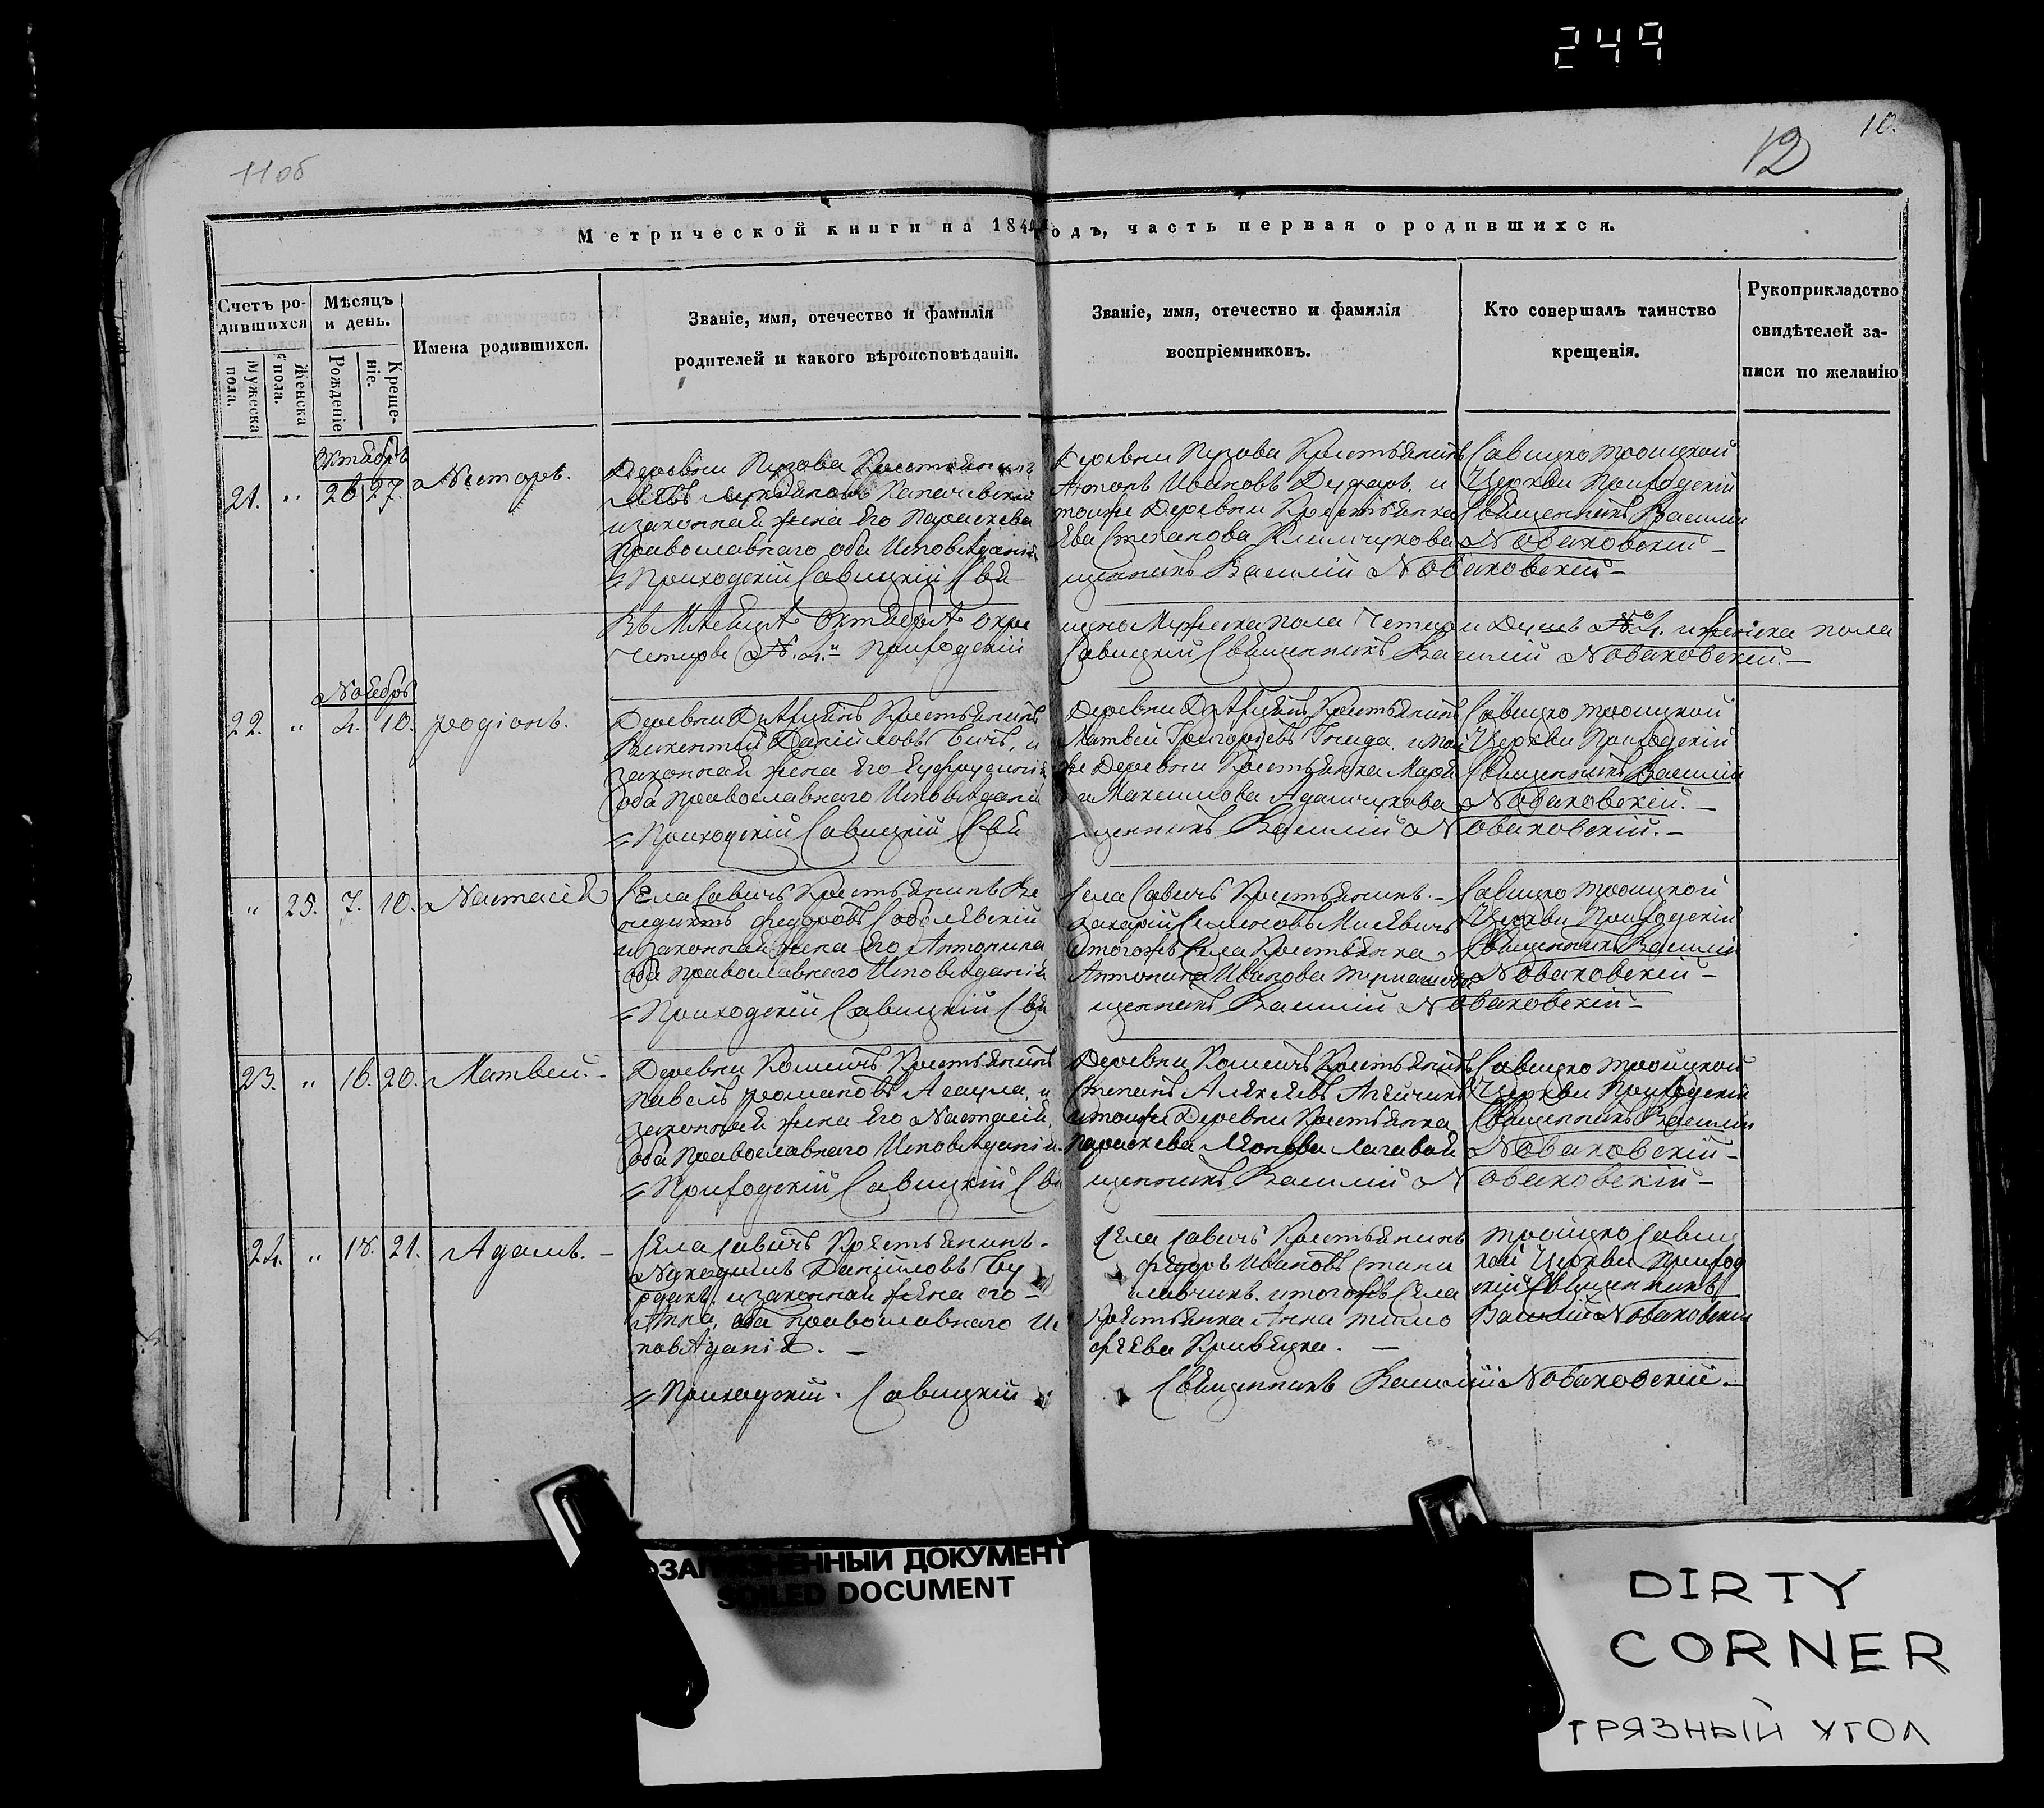 249
11 об
12
10.
Метрической книги на 184 одъ, часть первая о родившихся.
Счетъ ро-
дившихся
Мужеска пола.
Женска пола.
Мѣсяцъ
и день.
Рожденіе
Креще-
ніе.
Имена родившихся.
Званіе, имя, отечество и фамилія
родителей и какого вѣроисповѣданія.
Званіе, имя, отечество и фамилія
воспріемниковъ.
Кто совершалъ таинство
крещенія.
Рукоприкладство
свидѣтелей за-
писи по желанію
Октябрь
21. " 26 27. Несторъ.
Деревни Пузова Крестьянинъ
и законная жена Его Параскева
Православнаго оба Исповѣданія
Приходскій Савицкій Свя
Деревни Пузова Крестьянинъ
Антонъ Ивановъ Дударь. и
тойже Деревни Крестьянка
Ева Степанова Климчукова
щенникъ Василій Новаковскій
Савицко Троицкой
Церкви Приходскій
Священникъ Василій
Новаковскій
Въ Мѣсяцѣ Октябрѣ окре
щено Мужеска пола Четыри Душъ № 4. и женска пола
Четыре № 4." Приходскій
Савицкій Священникъ Василій Новаковскій.
Ноябрь
22. " 4. 10. Родіонъ.
Викентій Даніиловъ Бичь, и
законная жена Его Ефрузинія
оба Православнаго Исповѣданія
Приходскій Савицкій Свя
Матвей Григорьевъ Гнида. и той
же Деревни Крестьянка Марі
я Максимова Адамчукова
щенникъ Василій Новаковскій.
Савицко Троицкой
Церкви Приходскій
Священникъ Василій
Новаковскій.
" 25. 7. 10. Настасія
Села Савичъ Крестьянинъ Ве
недиктъ Федоровъ Соболевскій
и законная жена Его Антонина
оба Православнаго Исповѣданія
Приходскій Савицкій Свя
Села Савичъ Крестьянинъ.
Захарій Семеновъ Мисевичъ
итогожъ Села Крестьянка
Антонина Иванова
щенникъ Василій Новаковскій
Савицко Троицкой
Церкви Приходскій
Священникъ Василій
Новаковскій
23. " 16. 20. Матвей.
Деревни Кошичъ Крестьянинъ
Павелъ Романовъ Асаула, и
законная жена Его Настасія,
оба Православнаго Исповѣданія.
Приходскій Савицкій Свя
Деревни Кошичъ Крестьянинъ
Степанъ Алексѣевъ
итойже Деревни Крестьянка
Параскева Леонова
щенникъ Василій Новаковскій
Савицко Троицкой
Церкви Приходскій
Священникъ Василій
Новаковскій
24. " 18. 21. Адамъ.
Села Савичъ Крестьянинъ.
Никодимъ Даніиловъ Бу
рдакъ. и законная жена его
Анна, оба Православнаго Ис
повѣданія.
Приходскій. Савицкій
Села Савичъ Крестьянинъ
Федоръ Ивановъ Стани
славчикъ. итогожъ Села
Крестьянка Анна Тимо
фѣева Кривецка.
Священникъ Василій Новаковскій.
Троицко Савиц
кой Церкви Приход
скій Священникъ
Василій Новаковскій
ЗАГРЯЗНЕННЫЙ ДОКУМЕНТ
SOILED DOCUMENT
DIRTY
CORNER
ГРЯЗНЫЙ УГОЛ